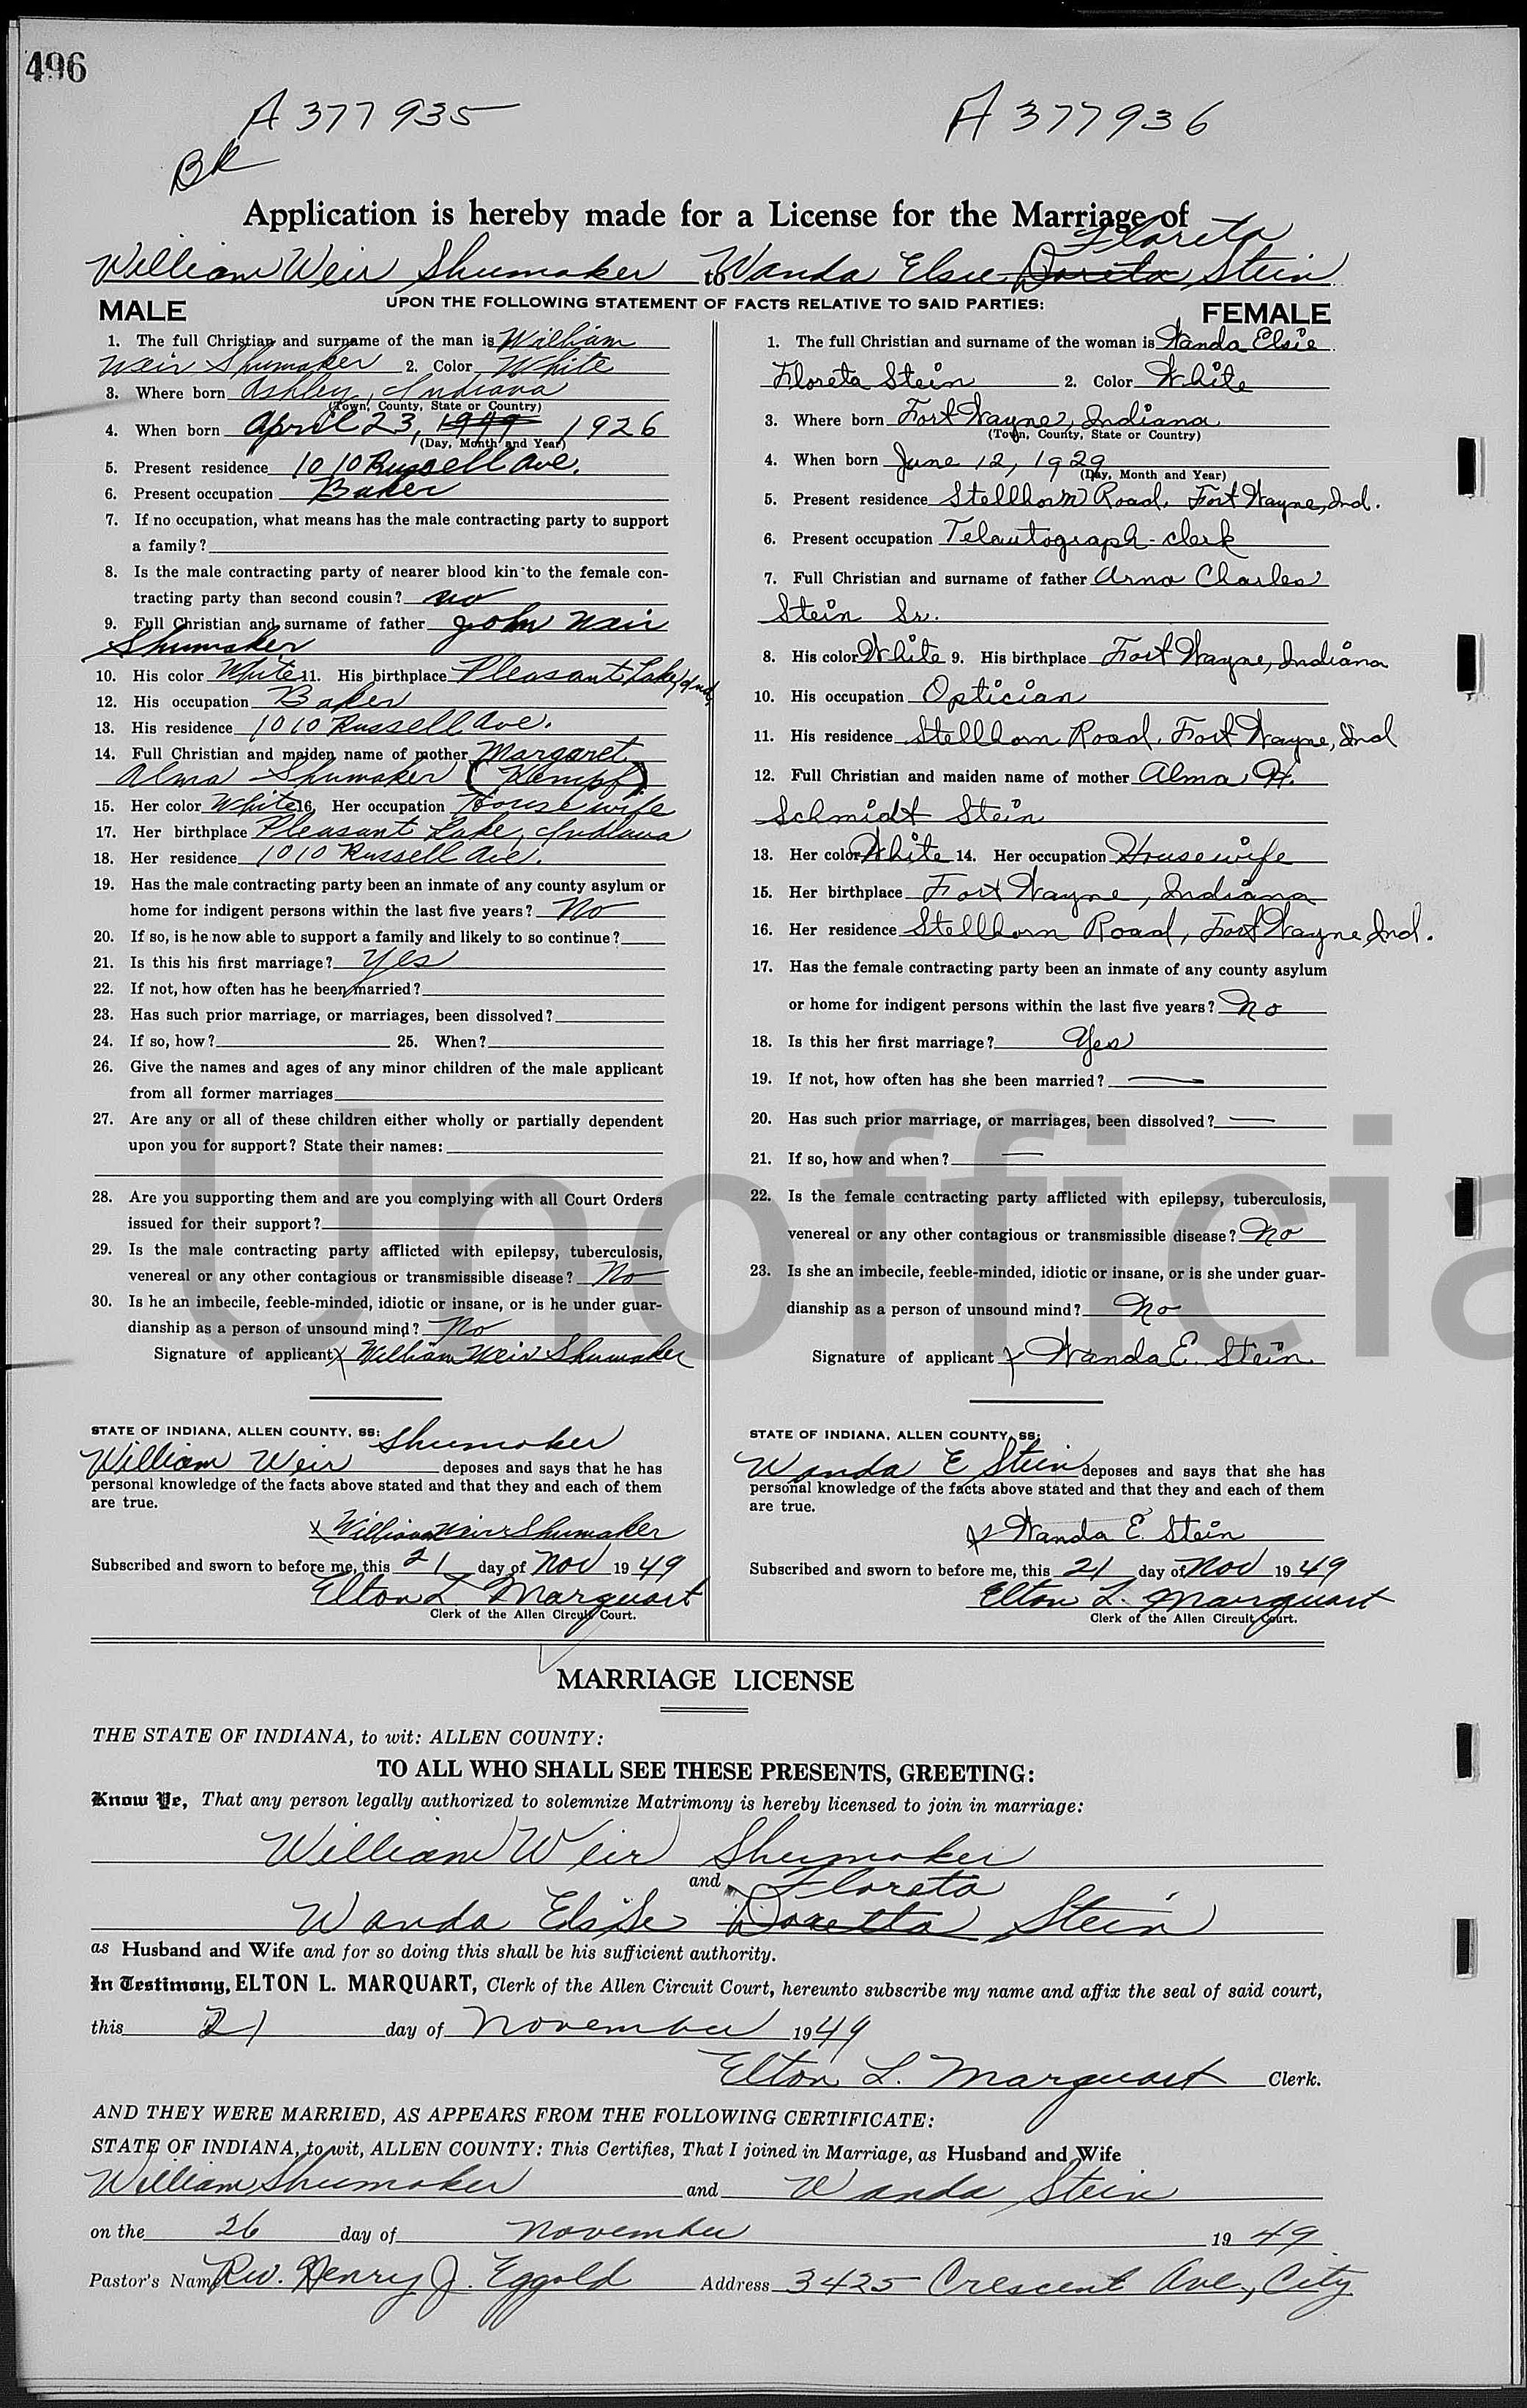 496
A 377935
A 377936
BR
Application is hereby made for a License for the Marriage of
Floreta
William Weir Shumaker to Wanda Elsie Doreta Stein
UPON THE FOLLOWING STATEMENT OF FACTS RELATIVE TO SAID PARTIES:
MALE
1. The full Christian and surname of the man is William
Weir Shumaker 2. Color White
3. Where born Ashley, Indiana
(Town, County, State or Country)
4. When born April 23, 1949 1926
(Day, Month and Year)
5. Present residence 1010 Russell Ave.
6. Present occupation Baker
7. If no occupation, what means has the male contracting party to support
a family?
8. Is the male contracting party of nearer blood kin to the female con-
tracting party than second cousin? no
9. Full Christian and surname of father John Weir
Shumaker
10. His color White 11. His birthplace Pleasant Lake, Ind.
12. His occupation Baker
13. His residence 1010 Russell Ave.
14. Full Christian and maiden name of mother Margaret
Alma Shumaker (Kempf)
15. Her color White 16. Her occupation Housewife
17. Her birthplace Pleasant Lake, Indiana
18. Her residence 1010 Russell Ave.
19. Has the male contracting party been an inmate of any county asylum or
home for indigent persons within the last five years? No
20. If so, is he now able to support a family and likely to so continue?
21. Is this his first marriage? Yes
22. If not, how often has he been married?
23. Has such prior marriage, or marriages, been dissolved?
24. If so, how? 25. When?
26. Give the names and ages of any minor children of the male applicant
from all former marriages
27. Are any or all of these children either wholly or partially dependent
upon you for support? State their names:
28. Are you supporting them and are you complying with all Court Orders
issued for their support?
29. Is the male contracting party afflicted with epilepsy, tuberculosis,
venereal or any other contagious or transmissible disease? No
30. Is he an imbecile, feeble-minded, idiotic or insane, or is he under guar-
dianship as a person of unsound mind? No
Signature of applicant x William Weir Shumaker
STATE OF INDIANA, ALLEN COUNTY, SS:
Shumaker
William Weir deposes and says that he has
personal knowledge of the facts above stated and that they and each of them
are true.
x William Weir Shumaker
Subscribed and sworn to before me, this 21 day of Nov 1949
Elton L. Marquart
Clerk of the Allen Circuit Court.
FEMALE
1. The full Christian and surname of the woman is Wanda Elsie
Floreta Stein 2. Color White
3. Where born Fort Wayne, Indiana
(Town, County, State or Country)
4. When born June 12, 1929
(Day, Month and Year)
5. Present residence Stellhorn Road, Fort Wayne, Ind.
6. Present occupation Telautograph-clerk
7. Full Christian and surname of father Arno Charles
Stein Sr.
8. His color White 9. His birthplace Fort Wayne, Indiana
10. His occupation Optician
11. His residence Stellhorn Road, Fort Wayne, Ind
12. Full Christian and maiden name of mother Alma H.
Schmidt Stein
13. Her color White 14. Her occupation Housewife
15. Her birthplace Fort Wayne, Indiana
16. Her residence Stellhorn Road, Fort Wayne, Ind.
17. Has the female contracting party been an inmate of any county asylum
or home for indigent persons within the last five years? No
18. Is this her first marriage? Yes
19. If not, how often has she been married? —
20. Has such prior marriage, or marriages, been dissolved? —
21. If so, how and when? —
22. Is the female contracting party afflicted with epilepsy, tuberculosis,
venereal or any other contagious or transmissible disease? No
23. Is she an imbecile, feeble-minded, idiotic or insane, or is she under guar-
dianship as a person of unsound mind? No
Signature of applicant x Wanda E. Stein
STATE OF INDIANA, ALLEN COUNTY, SS:
Wanda E Stein deposes and says that she has
personal knowledge of the facts above stated and that they and each of them
are true.
x Wanda E. Stein
Subscribed and sworn to before me, this 21 day of Nov 1949
Elton L. Marquart
Clerk of the Allen Circuit Court.
Unofficia
MARRIAGE LICENSE
THE STATE OF INDIANA, to wit: ALLEN COUNTY:
TO ALL WHO SHALL SEE THESE PRESENTS, GREETING:
Know Ye, That any person legally authorized to solemnize Matrimony is hereby licensed to join in marriage:
William Weir Shumaker
and Floreta
Wanda Elsie Doretta Stein
as Husband and Wife and for so doing this shall be his sufficient authority.
In Testimony, ELTON L. MARQUART, Clerk of the Allen Circuit Court, hereunto subscribe my name and affix the seal of said court,
this 21 day of November 1949
Elton L. Marquart Clerk.
AND THEY WERE MARRIED, AS APPEARS FROM THE FOLLOWING CERTIFICATE:
STATE OF INDIANA, to wit, ALLEN COUNTY: This Certifies, That I joined in Marriage, as Husband and Wife
William Shumaker and Wanda Stein
on the 26 day of November 1949
Pastor's Name Rev. Henry J. Eggold Address 3425 Crescent Ave., City